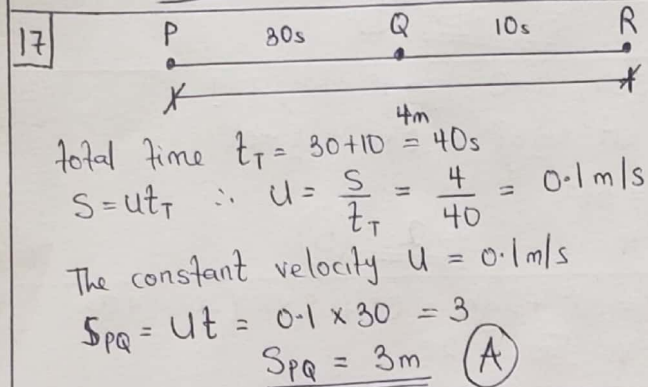 17
P 30s Q 10s R
4m
total time t_T = 30+10 = 40s
S = ut_T ∴ U = S/t_T = 4/40 = 0.1 m/s
The constant velocity U = 0.1m/s
S_PQ = Ut = 0.1 × 30 = 3
S_PQ = 3m A